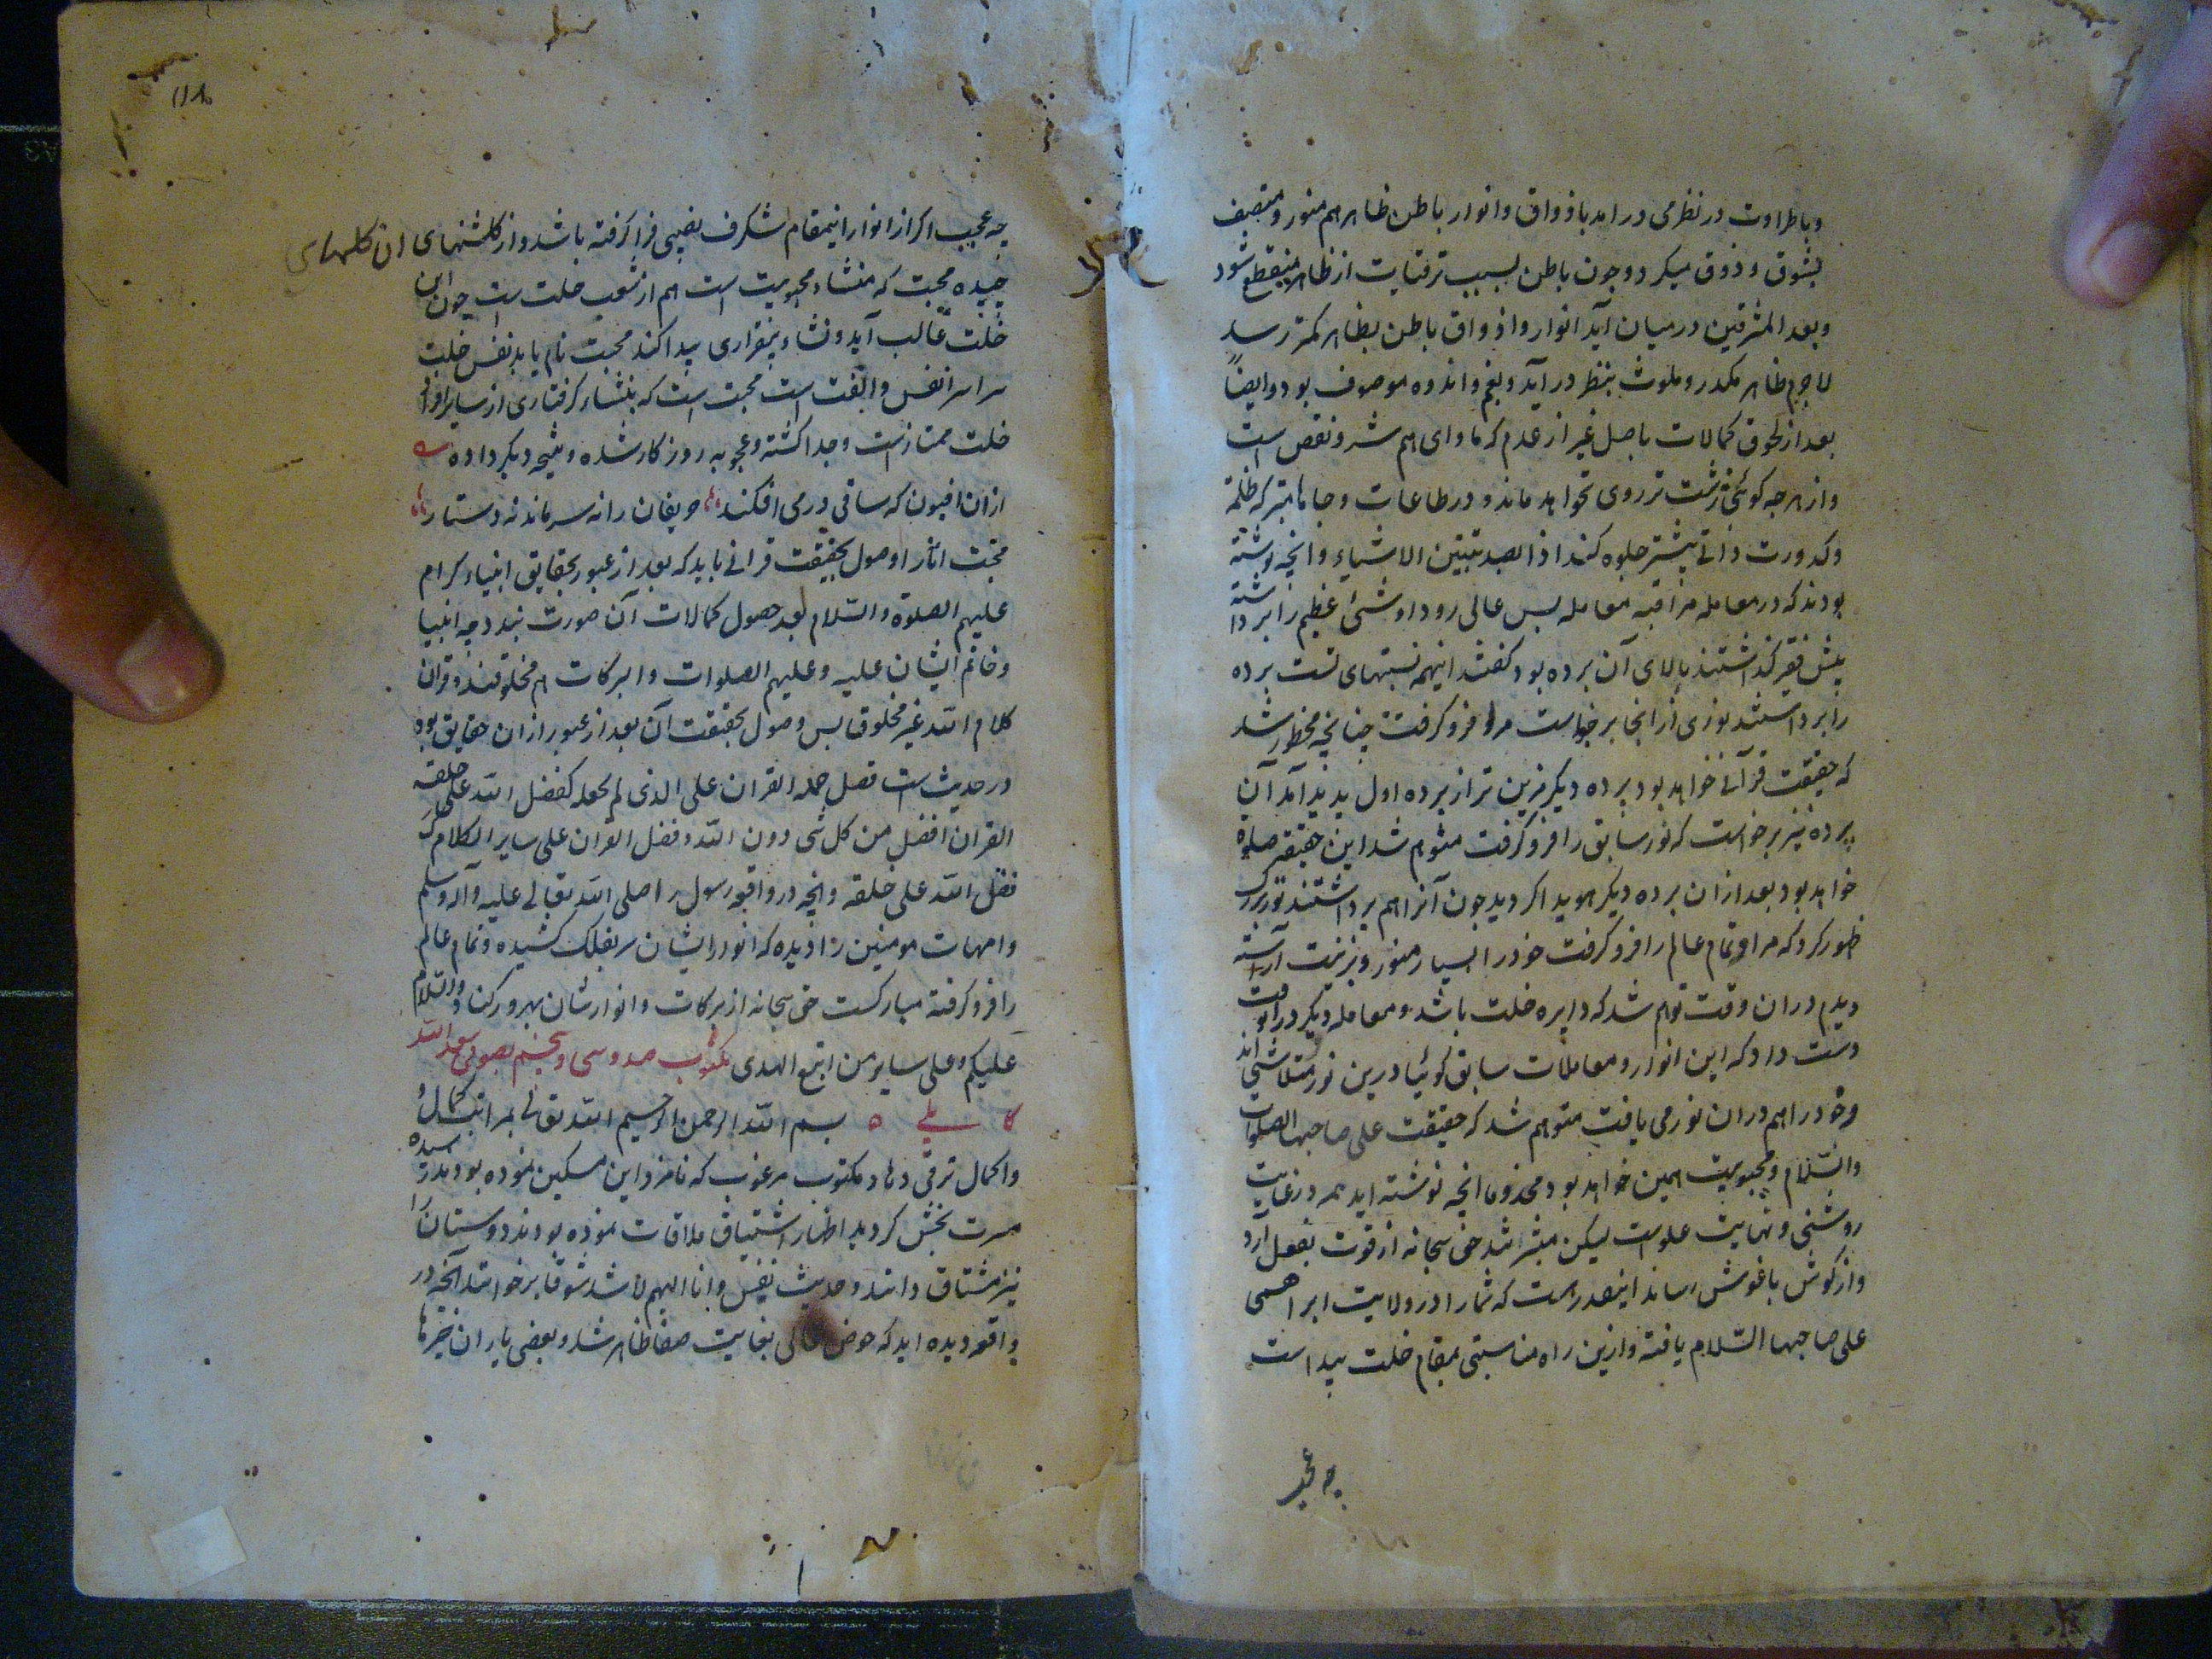 و با طراوت در نظر می در امد باذواق و انوار باطن ظاهر هم منور و متصف
بشوق و ذوق میکردد و چون باطن بسبب ترقیات از ظاهر منقطع شود
و بعد المشرقین در میان آید انوار و اذواق باطن بظاهر کمتر رسد
لاجرم ظاهر مکدر و ملوث بنظر در آید و بغم و اندوه موصوف بود و ایضاً
بعد از لحوق کمالات باصل غیر از عدم که ماوای هم شر و نقص است
و از هر چه کوئی زشت تر روی نخواهد ماند و در طاعات و جاها متبرکه ظلمة
و کدورت ذاتی بیشتر جلوه کند اذ بالضد تتبین الاشیاء و انچه نوشته
بودند که در معامله مراقبه معامله بس عالی رو داد و شئ عظیم را برداشته
پیش فقیر کذاشتند بالای آن پرده بود کفتند اینهمه نسبتهای تست پرده
را برداشتند نوری از انجا برخواست مرا فرو کرفت چنانچه مخطور شد
که حقیقت قرآنی خواهد بود پرده دیکر مزین تر از پرده اول پدید آمد آن
پرده نیز برخواست که نور سابق را فرو کرفت متوهم شد این حقیقت صلوة
خواهد بود بعد ازان پرده دیکر هویدا کردید چون آنرا هم برداشتند نور بزرک
ظهور کرد که مرا و تمام عالم را فرو کرفت خود را بسیار منور و بزینت آراسته
دیدم دران وقت توهم شد که دایره خلت باشد و معامله دیکر دران وقت
دست داد که این انوار و معاملات سابق کوئیا درین نور متلاشی اند
و خود را هم دران نور می یافت متوهم شد که حقیقت علی صاحبها الصلوات
والسّلام و محبوبیت همین خواهد بود مخدوما انچه نوشته اید همه در غایت
روشنی و نهایت علو است لیکن مبشر شد حق سبحانه از قوت بفعل آرد
و از کوش باغوش رساند اینقدر هست که شما را در ولایت ابراهیمی
علی صاحبها السّلام یافته و ازین راه مناسبتی بمقام خلت پیدا است
چه عجب
۱۱۸
چه عجب اکر از انوار اینمقام شکرف نصیبی فرا کرفته باشد و از کلشنهای ان کلهای
چیده محبت که منشاء محبوبیت است هم از شعب خلت است چون این
خلت غالب آید و نشاء بیقراری پیدا کند محبت نام یابد نفس خلت
سراسر انس و الفت است محبت است که بنشاء کرفتاری از سایر افراد
خلت ممتاز است و جدا کشته و عجوبه روزکار شده و نتیجه دیکر داده
ازان افیون که ساقی در می افکند حریفان را نه سر ماند نه دستار
محبت اثار اوصول بحقیقت قرانی باید که بعد از عبور بحقایق انبیاء کرام
علیهم الصلوة والسّلام بعد حصول کمالات آن صورت بندد چه انبیا
و خاتم ایشان علیه و علیهم الصلوات و البرکات هم مخلوقند و قران
کلام الله غیر مخلوق پس وصول بحقیقت آن بعد از عبور ازان حقایق بود
در حدیث است فضل حملة القران علی الذی لم یحمله کفضل الله علی خلقه
القران افضل من کل شی دون الله و فضل القران علی سایر الکلام ک
فضل الله علی خلقه و انچه در واقعه رسول را صلی الله تعالی علیه وآله وسلم
و امهات مومنین را دیده که انوار ایشان بفلک کشیده و تمام عالم
را فرو کرفته مبارکست حق سبحانه از برکات و انوار شان بهره ور کناد والسّلام
علیکم و علی سایر من اتبع الهدی مکتوب صد و سی و پنجم بصوفی سعد الله
کابلی بسم الله الرحمن الرحیم الله تعالی بمراتب کمال
و اکمال ترقی دهاد مکتوب مرغوب که نامزد این مسکین نموده بودند رسیده
مسرت بخش کردید اظهار اشتیاق ملاقات نموده بودند دوستان را
نیز مشتاق دانند و حدیث نفیس و انا الیهم لاشد شوقا برخوانند آنچه در
واقعه دیده اید که حوض عالی بغایت صفا ظاهر شد و بعضی یاران